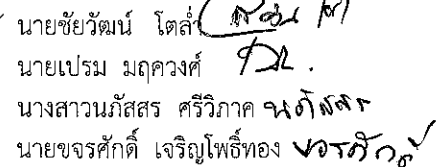 นายชัยวัฒน์ โตล่ำ
นายเปรม มฤควงศ์
นางสาวนภัสสร ศรีวิภาค นภัสสร
นายขจรศักดิ์ เจริญโพธิ์ทอง ขจรศักดิ์